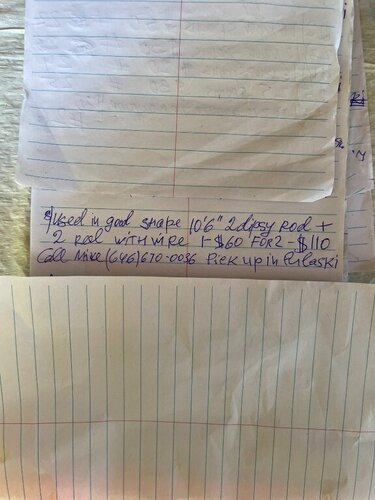 Used in good shape 10'6" 2 dipsy rod +
2 reel with wire 1-$60 FOR 2-$110
Call Mike (646) 670-0036 Pick up in Pulaski